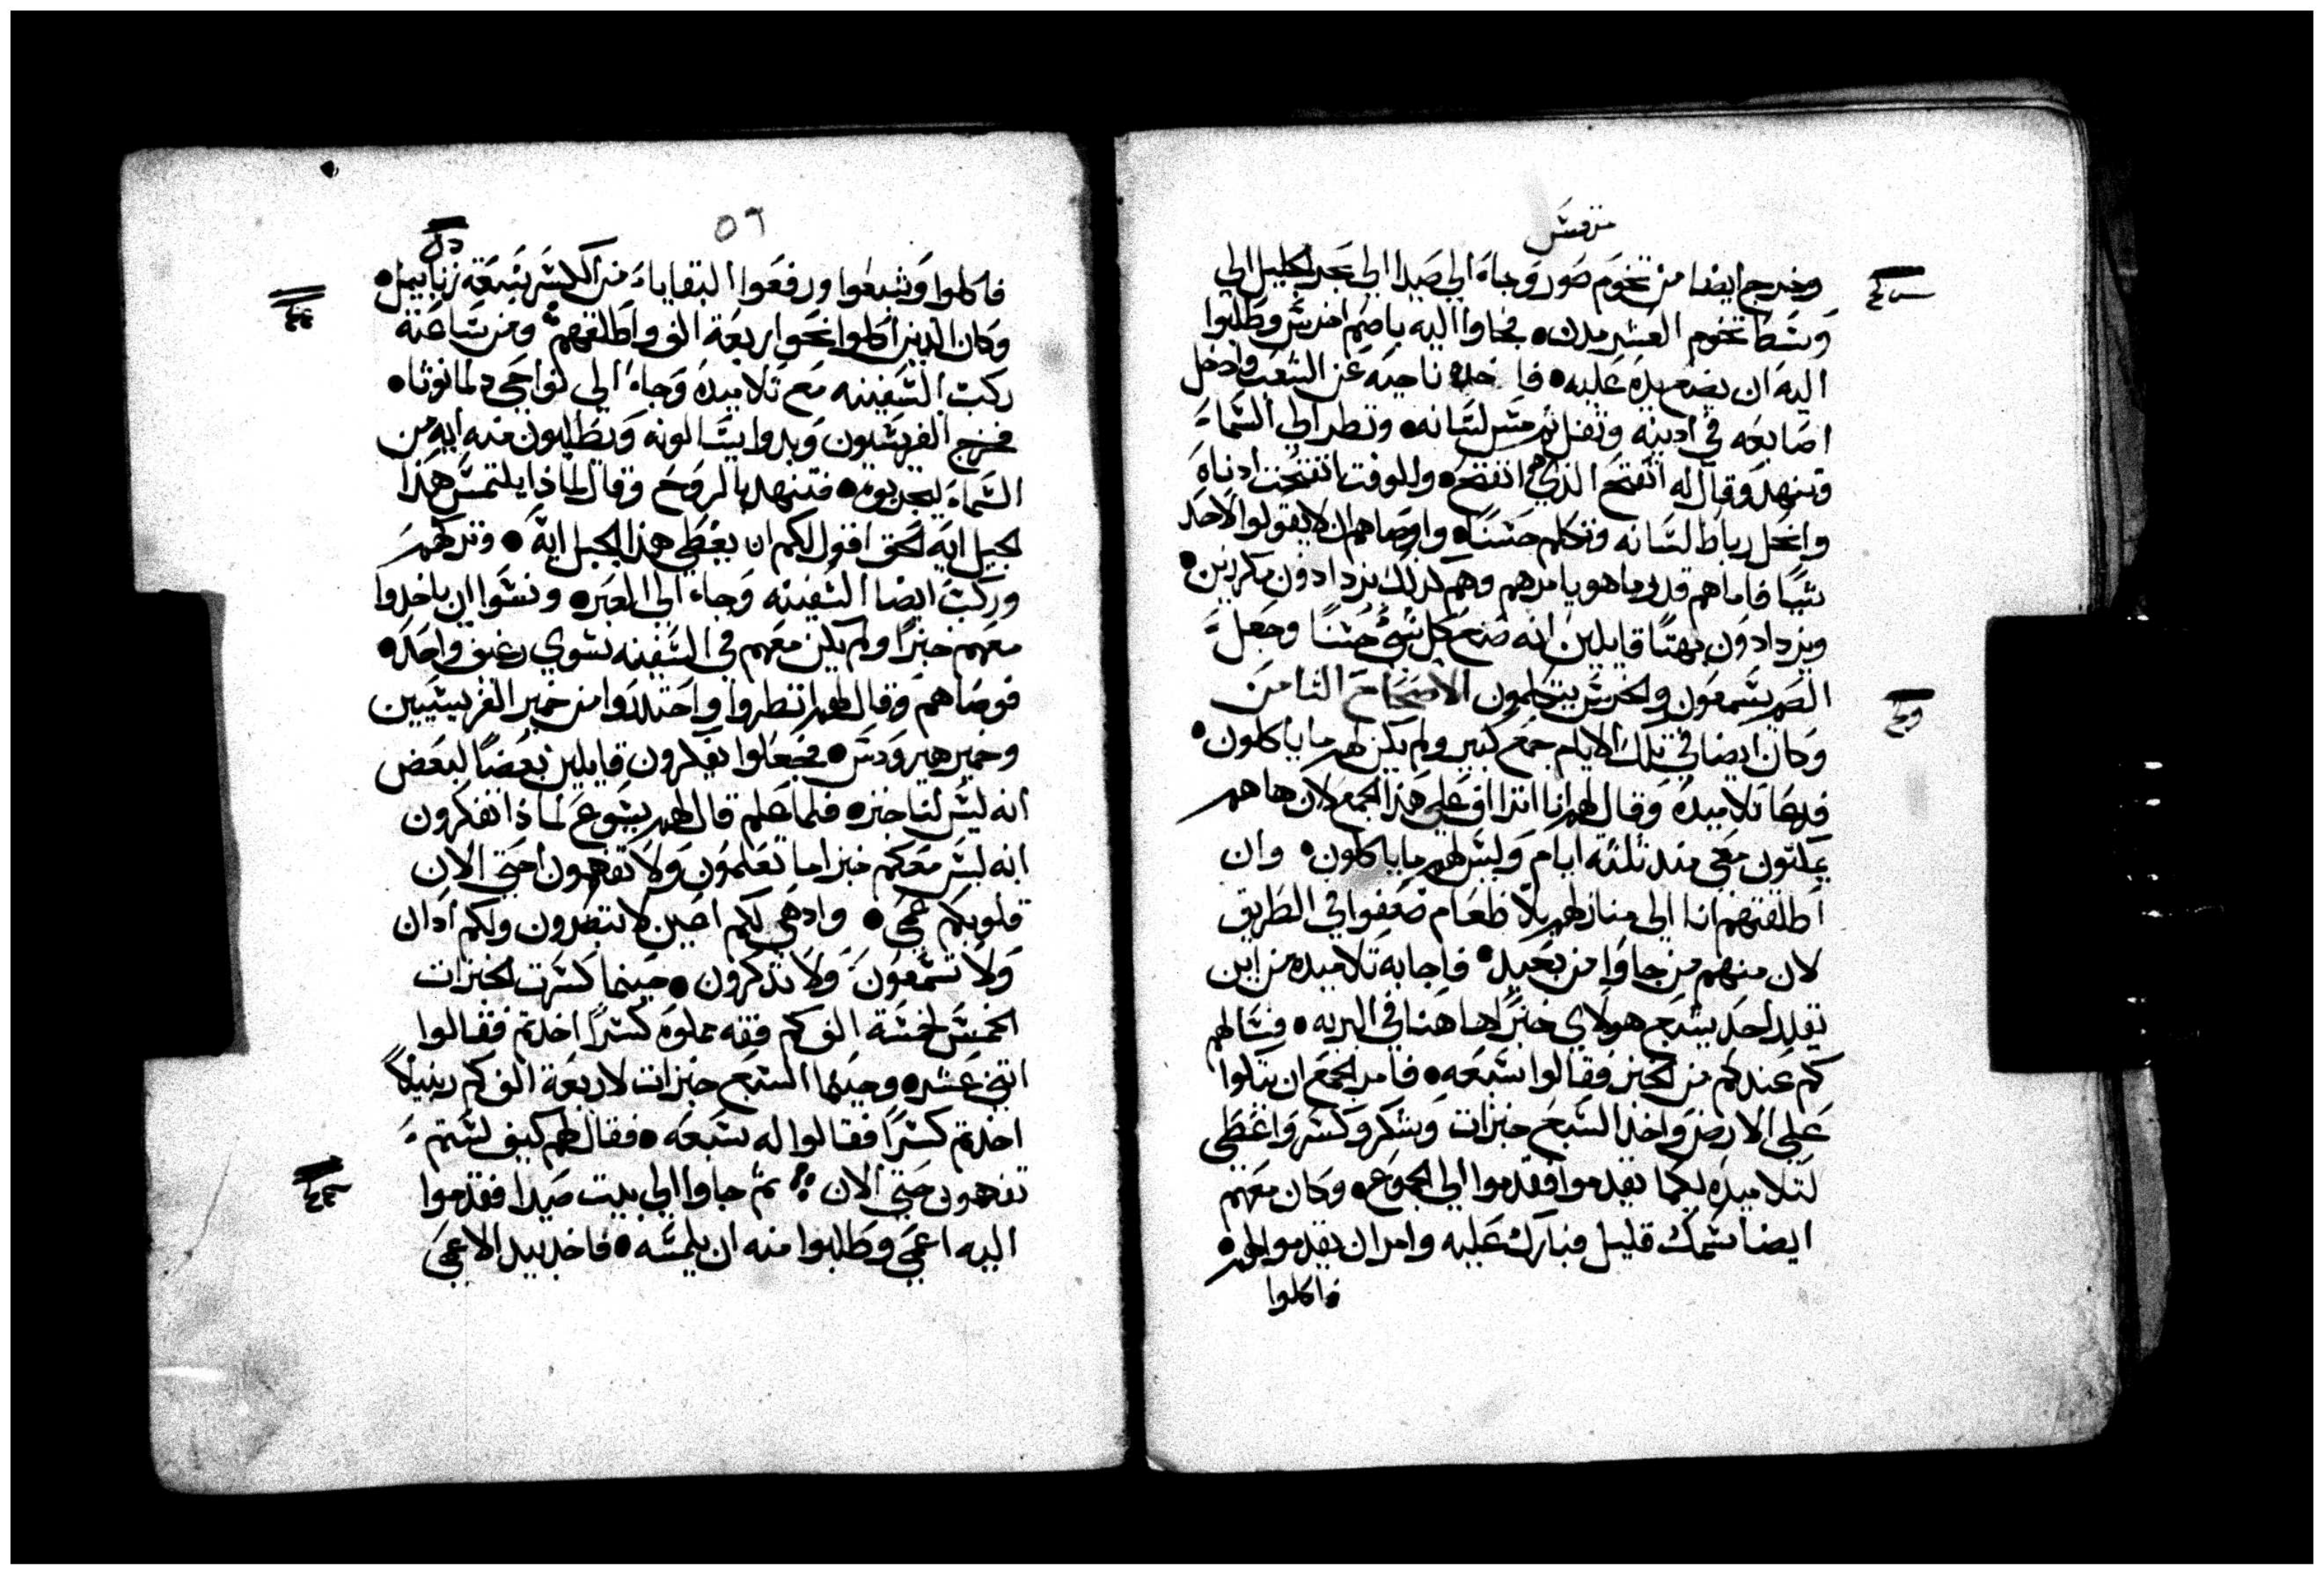 مرقس
وخرج ايضا من تخوم صور وجاء الى صيدا الى بحر الجليل الى
وسط تخوم العشر مدن • فجاوا اليه باصم اخرس وطلبوا
اليه ان يضع يده عليه • فاخده ناحيه عن الشعب وادخل
اصابعه في ادنيه وتفل ثم مس لسانه • ونظر الى السماء
وتنهد وقال له انفتح الذي هي انفتح • وللوقت انفتحت ادناه
وانحل رباط لسانه وتكلم حسنا • واوصاهم ان لا يقولوا لاحد
شيا فاما هم قدر ما هو يامرهم وهم كدلك يزدادون يكررنين •
ويزدادون بهتا قايلين انه صنع كل شي حسنا وجعل
الصم يسمعون والخرس يتكلمون الاصحاح الثامن
وكان ايضا في تلك الايام جمع كبير ولم يكن لهم ما ياكلون •
فدعا تلاميده وقال لهم انا اتراف على هذا الجمع لان ها هم
يمكتون معي مند ثلثه ايام وليس لهم ما ياكلون • وان
اطلقتهم انا الى منازلهم بلا طعام ضعفوا في الطريق
لان منهم من جاوا من بعيد • فاجابه تلاميده من اين
يقدر احد يشبع هولاي خبزا ها هنا في البريه • فسالهم
كم عندكم من الخبز فقالوا سبعه • فامر الجمع ان يتكوا
على الارض واخد السبع خبزات وشكر وكسر واعطى
لتلاميده لكيما يقدموا فقدموا الى الجموع • وكان معهم
ايضا سمك قليل فبارك عليه وامر ان يقدموا لهم •
فاكلوا
٥٦
فاكلوا وشبعوا ورفعوا البقاياء من الكسر سبعة زنابيل •
وكان الدين اكلوا نحو اربعة الف واطلقهم ومن ساعته
ركب السفينه مع تلاميده وجاء الى نواحي دلمانوثا •
فخرج الفريسيون وبدوا يسالونه ويطلبون منه ايه من
السماء ليجربوه • فتنهد بالروح وقال لماذا يلتمس هذا
الجيل ايه الحق اقول لكم ان يعطى هذا الجيل ايه • وتركهم
وركب ايضا السفينه وجاء الى العبر • ونسوا ان ياخدوا
معهم خبزا ولم يكن معهم في السفينه سوى رغيف واحد •
فوصاهم وقال لهم انظروا واحتدروا من خمير الفريسيين
وخمير هيرودس • فجعلوا يفكرون قايلين بعضا لبعض
انه ليس لنا خبز • فلما علم قال لهم يسوع لماذا تفكرون
انه ليس معكم خبز اما تعلمون ولا تفهمون احتى الان
قلوبكم عمى • واد هي لكم اعين لا تبصرون ولكم ادان
ولا تسمعون ولا تدكرون • حينما كسرت الخبزات
الخمس لخمسة الف كم قفه مملوه كسرا اخدتم فقالوا
اتنى عشر • وحينما السبع خبزات لاربعة الف كم زنبيلا
اخدتم كسرا فقالوا له سبعه • فقال لهم كيف لستم
تفهمون حتى الان ثم جاوا الى بيت صيدا فقدموا
اليه اعمى وطلبوا منه ان يلمسه • فاخد بيد الاعمى